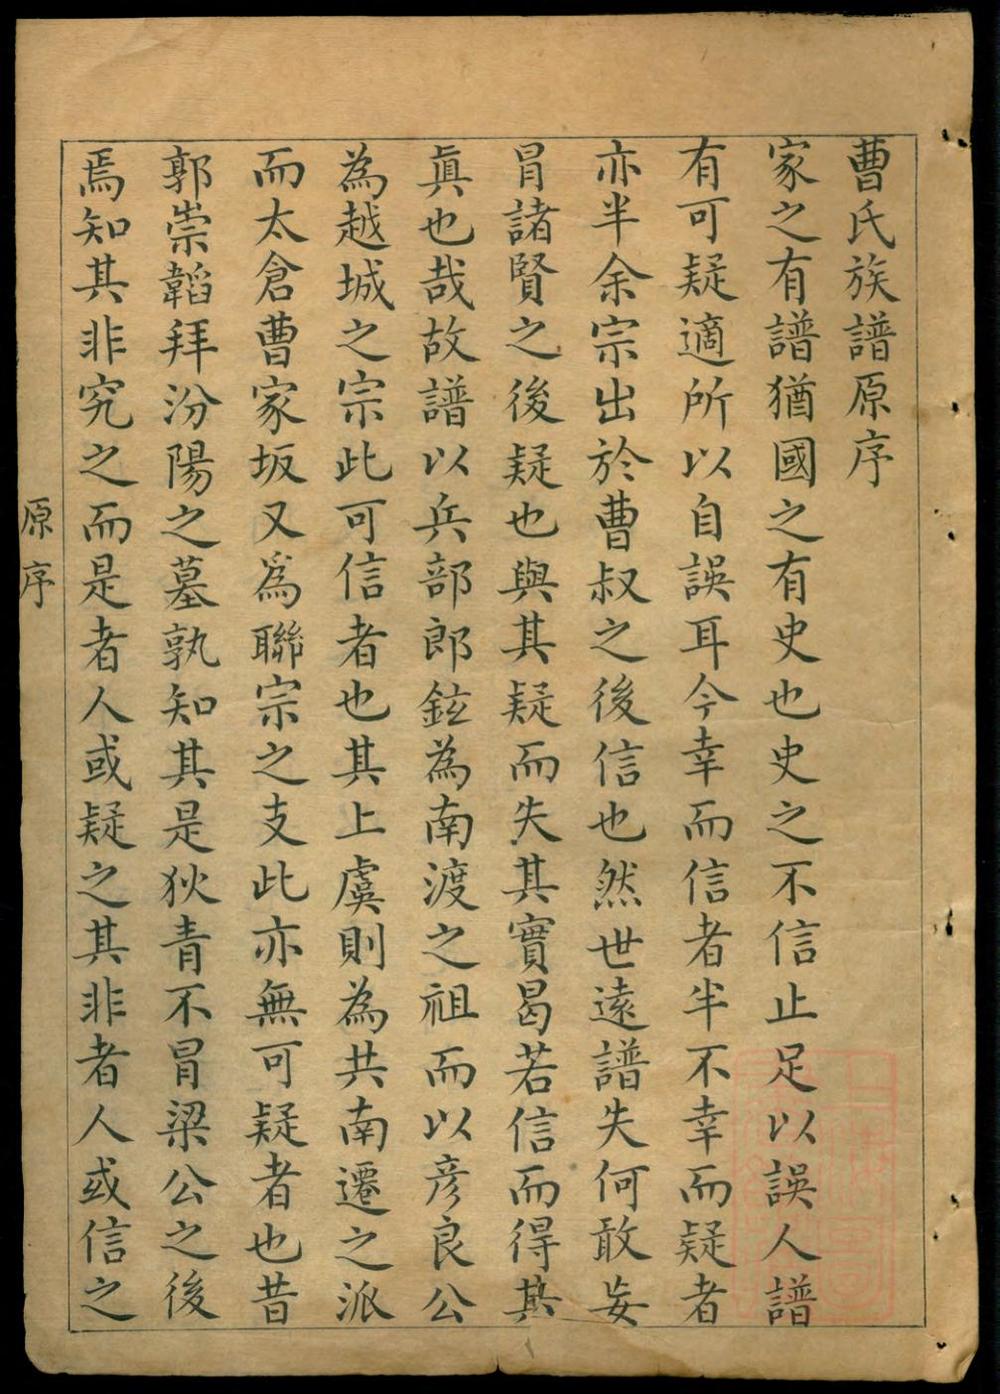 曹氏族譜原序
家之有譜猶國之有史也史之不信止足以誤人譜
有可疑適所以自誤耳今幸而信者半不幸而疑者
亦半余宗出於曹叔之後信也然世遠譜失何敢妄
冒諸賢之後疑也與其疑而失其實曷若信而得其
眞也哉故譜以兵部郎鉉為南渡之祖而以彦良公
為越城之宗此可信者也其上虞則為共南遷之派
而太倉曹家坂又爲聯宗之支此亦無可疑者也昔
郭崇韜拜汾陽之墓孰知其是狄青不冒梁公之後
焉知其非究之而是者人或疑之其非者人或信之
原序